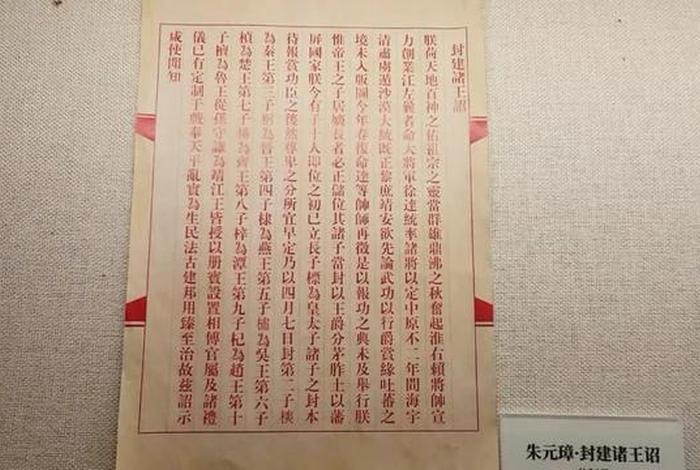 封建諸王詔
朕荷天地百神之佑祖宗之靈當群雄鼎沸之秋奮起淮右賴將帥宣
力創業江左曩者命大將軍徐達統率諸將以定中原不二年間海宇
清肅虜遁沙漠大統既正黎庶靖安欲先論武功以行爵賞緣吐蕃之
境未入版圖今年春復命達等帥師再徵是以報功之典未及舉行朕
惟帝王之子居嫡長者必正儲位其諸子當封以王爵分茅胙土以藩
屏國家朕今有子十人即位之初已立長子標為皇太子諸子之封本
待報賞功臣之後然尊卑之分所宜早定乃以四月七日封第二子樉
為秦王第三子㭎為晉王第四子棣為燕王第五子橚為吳王第六子
楨為楚王第七子榑為齊王第八子梓為潭王第九子杞為趙王第十
子檀為魯王從孫守謙為靖江王皆授以册寶設置相傅官屬及諸禮
儀已有定制于戲奉天平亂實為生民法古建邦用臻至治故茲詔示
咸使聞知
朱元璋·封建诸王诏